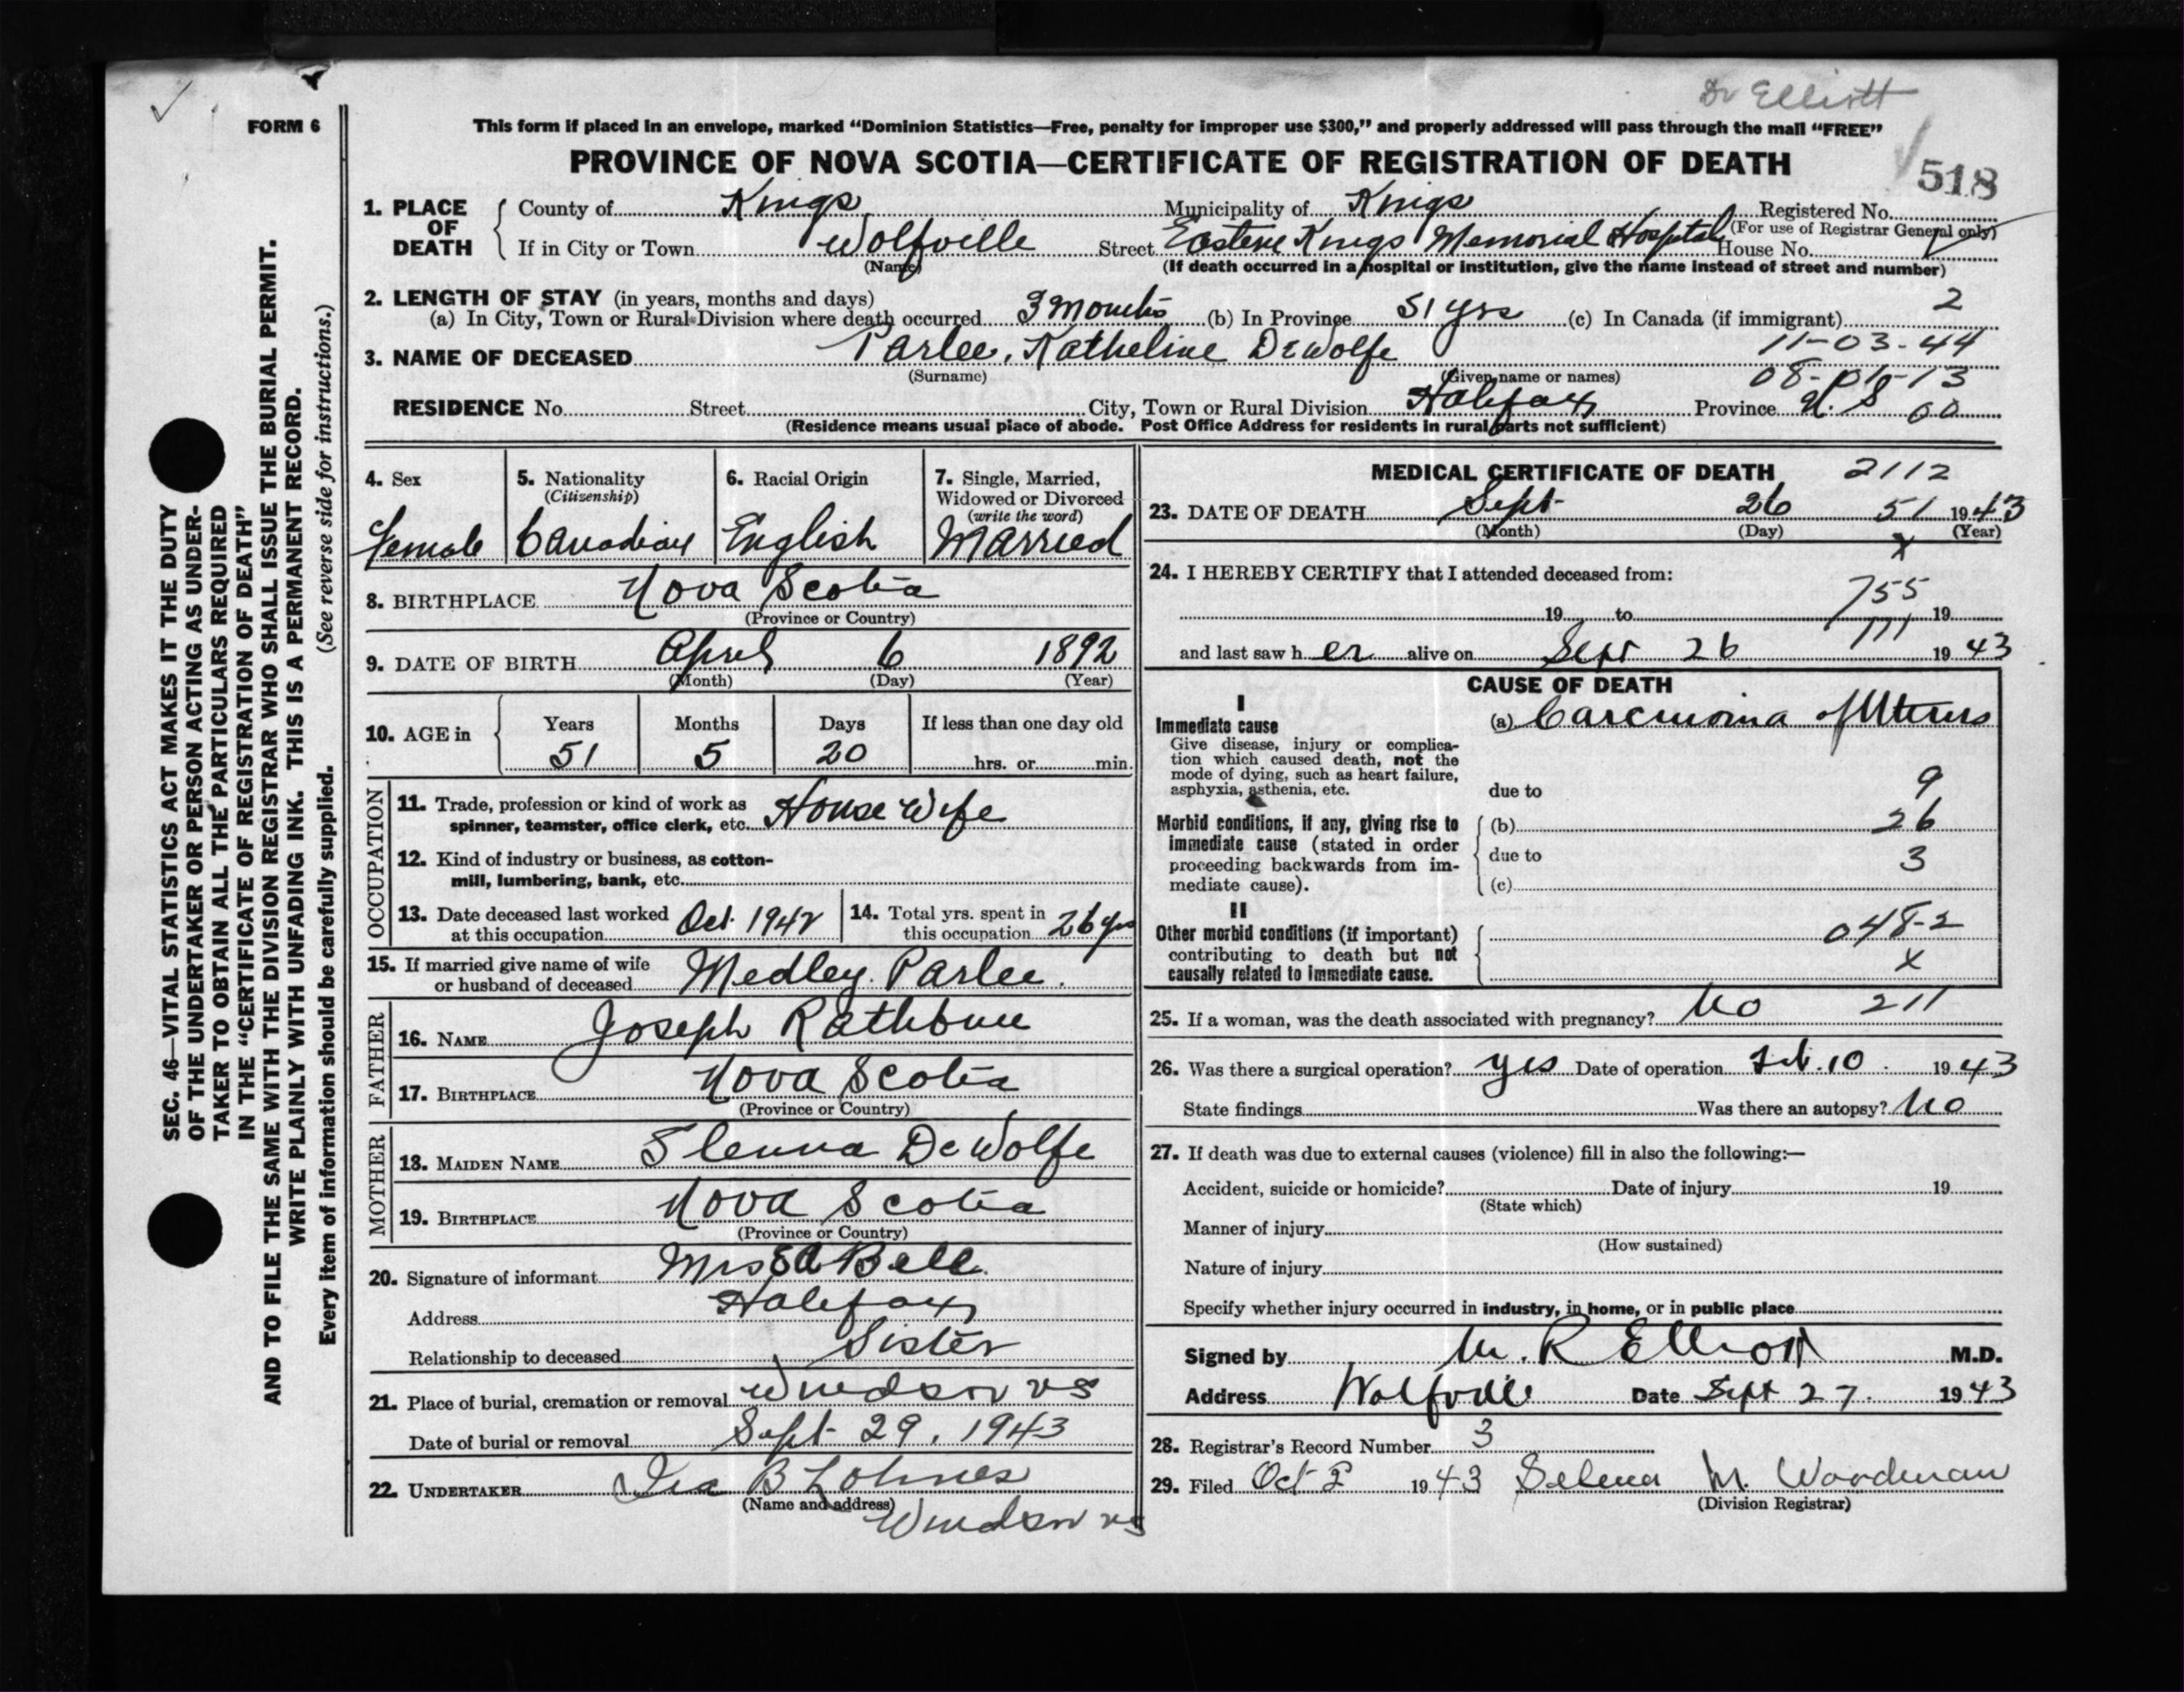 Dr Elliott
FORM 6
This form if placed in an envelope, marked “Dominion Statistics—Free, penalty for improper use $300,” and properly addressed will pass through the mail “FREE”
PROVINCE OF NOVA SCOTIA—CERTIFICATE OF REGISTRATION OF DEATH
518
1. PLACE OF DEATH
County of Kings Municipality of Kings Registered No.
(For use of Registrar General only)
If in City or Town Wolfville Street Eastern Kings Memorial Hospital House No.
(Name) (If death occurred in a hospital or institution, give the name instead of street and number)
2. LENGTH OF STAY (in years, months and days)
(a) In City, Town or Rural Division where death occurred 3 Months (b) In Province 51 yrs (c) In Canada (if immigrant) 2
3. NAME OF DECEASED Parlee, Katheline DeWolfe 11-03-44
(Surname) (Given name or names) 08-01-13
RESIDENCE No. Street City, Town or Rural Division Halifax Province N.S 00
(Residence means usual place of abode. Post Office Address for residents in rural parts not sufficient)
4. Sex
Female
5. Nationality
(Citizenship)
Canadian
6. Racial Origin
English
7. Single, Married,
Widowed or Divorced
(write the word)
Married
8. BIRTHPLACE Nova Scotia
(Province or Country)
9. DATE OF BIRTH April 6 1892
(Month) (Day) (Year)
10. AGE in
Years Months Days If less than one day old
51 5 20 hrs. or min.
OCCUPATION
11. Trade, profession or kind of work as
spinner, teamster, office clerk, etc. House Wife
12. Kind of industry or business, as cotton-
mill, lumbering, bank, etc.
13. Date deceased last worked
at this occupation Oct. 1942
14. Total yrs. spent in
this occupation 26 yrs
15. If married give name of wife
or husband of deceased Medley Parlee.
FATHER
16. NAME Joseph Rathbun
17. BIRTHPLACE Nova Scotia
(Province or Country)
MOTHER
18. MAIDEN NAME DeWolfe
19. BIRTHPLACE Nova Scotia
(Province or Country)
20. Signature of informant Mrs Ed Bell
Address Halifax
Relationship to deceased Sister
21. Place of burial, cremation or removal Windsor NS
Date of burial or removal Sept 29, 1943
22. UNDERTAKER Ira B Lohnes
(Name and address)
Windsor NS
MEDICAL CERTIFICATE OF DEATH 2112
23. DATE OF DEATH Sept 26 51 1943
(Month) (Day) (Year)
x
24. I HEREBY CERTIFY that I attended deceased from:
755
19 to 19
111
and last saw her alive on Sept 26 1943
CAUSE OF DEATH
I
Immediate cause (a) Carcinoma of Uterus
Give disease, injury or complica-
tion which caused death, not the
mode of dying, such as heart failure,
asphyxia, asthenia, etc. due to 9
Morbid conditions, if any, giving rise to
immediate cause (stated in order
proceeding backwards from im-
mediate cause).
(b) 26
due to 3
(c)
II
Other morbid conditions (if important)
contributing to death but not
causally related to immediate cause.
048-2
x
25. If a woman, was the death associated with pregnancy? No 211
26. Was there a surgical operation? yes Date of operation Feb. 10. 1943
State findings Was there an autopsy? No
27. If death was due to external causes (violence) fill in also the following:—
Accident, suicide or homicide? Date of injury 19
(State which)
Manner of injury
(How sustained)
Nature of injury
Specify whether injury occurred in industry, in home, or in public place
Signed by M. R Elliott M.D.
Address Wolfville Date Sept 27. 1943
28. Registrar's Record Number 3
29. Filed Oct 2 1943 Selena M. Woodman
(Division Registrar)
SEC. 46—VITAL STATISTICS ACT MAKES IT THE DUTY
OF THE UNDERTAKER OR PERSON ACTING AS UNDER-
TAKER TO OBTAIN ALL THE PARTICULARS REQUIRED
IN THE “CERTIFICATE OF REGISTRATION OF DEATH”
AND TO FILE THE SAME WITH THE DIVISION REGISTRAR WHO SHALL ISSUE THE BURIAL PERMIT.
WRITE PLAINLY WITH UNFADING INK. THIS IS A PERMANENT RECORD.
Every item of information should be carefully supplied. (See reverse side for instructions.)